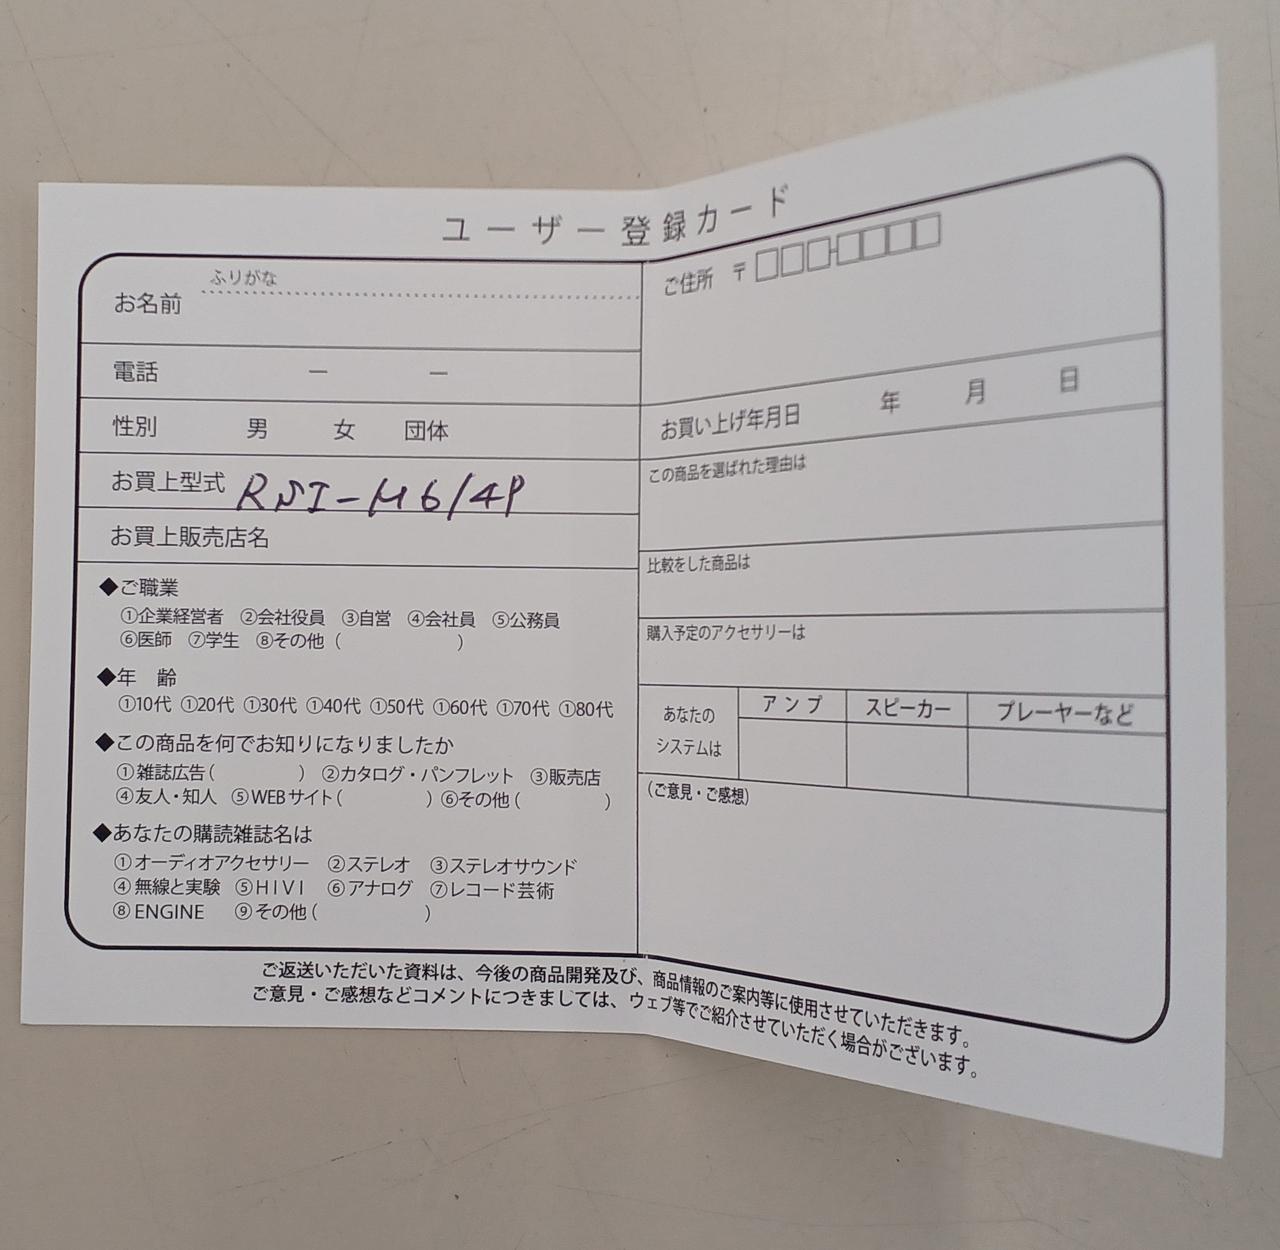 ユーザー登録カード
ふりがな
お名前
電話 ー ー
性別 男 女 団体
お買上型式 RSI-M6/4P
お買上販売店名
◆ご職業
①企業経営者 ②会社役員 ③自営 ④会社員 ⑤公務員
⑥医師 ⑦学生 ⑧その他（ ）
◆年 齢
①10代 ①20代 ①30代 ①40代 ①50代 ①60代 ①70代 ①80代
◆この商品を何でお知りになりましたか
①雑誌広告（ ） ②カタログ・パンフレット ③販売店
④友人・知人 ⑤WEBサイト（ ）⑥その他（ ）
◆あなたの購読雑誌名は
①オーディオアクセサリー ②ステレオ ③ステレオサウンド
④無線と実験 ⑤HIVI ⑥アナログ ⑦レコード芸術
⑧ENGINE ⑨その他（ ）
ご住所 〒 -
お買い上げ年月日 年 月 日
この商品を選ばれた理由は
比較をした商品は
購入予定のアクセサリーは
あなたの
システムは
アンプ スピーカー プレーヤーなど
（ご意見・ご感想）
ご返送いただいた資料は、今後の商品開発及び、商品情報のご案内等に使用させていただきます。
ご意見・ご感想などコメントにつきましては、ウェブ等でご紹介させていただく場合がございます。